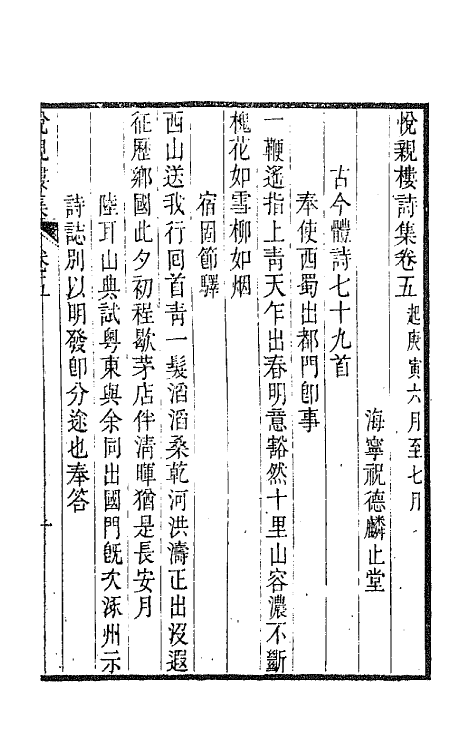 悅親樓詩集卷五 起庚寅六月至七月
海寧祝德麟止堂
古今體詩七十九首
奉使西蜀出都門卽事
一鞭遙指上靑天乍出春明意豁然十里山容濃不斷
槐花如雪柳如烟
宿固節驛
西山送我行回首靑一髮滔滔桑乾河洪濤正出沒遐
征歷鄉國此夕初程歇茅店伴淸暉猶是長安月
陸耳山典試粵東與余同出國門旣次涿州示
詩誌別以明發卽分途也奉答
悅親樓集 卷五 一